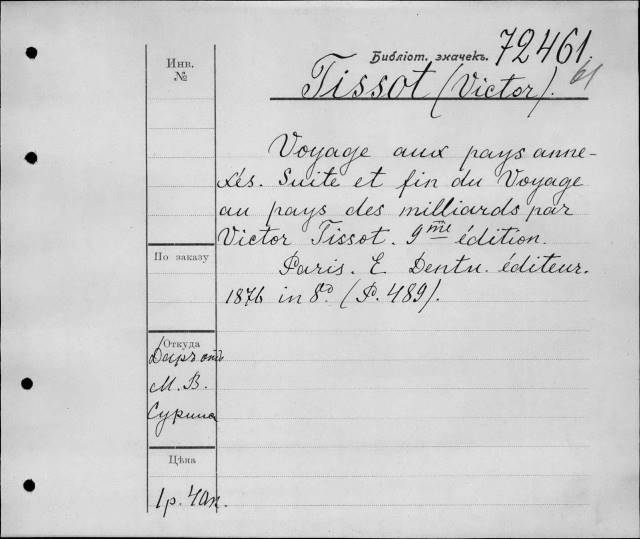 Библіот. значекъ. 72461.
61
Tissot (Victor).
Инв.
№
Voyage aux pays anne-
xés. Suite et fin du Voyage
au pays des milliards par
Victor Tissot. 9me édition.
По заказу
Paris. E. Dentu. éditeur.
1876 in 8º. (P. 489).
Откуда
Даръ отъ
М. В.
Сурина
Цѣна
1 р. 40 к.